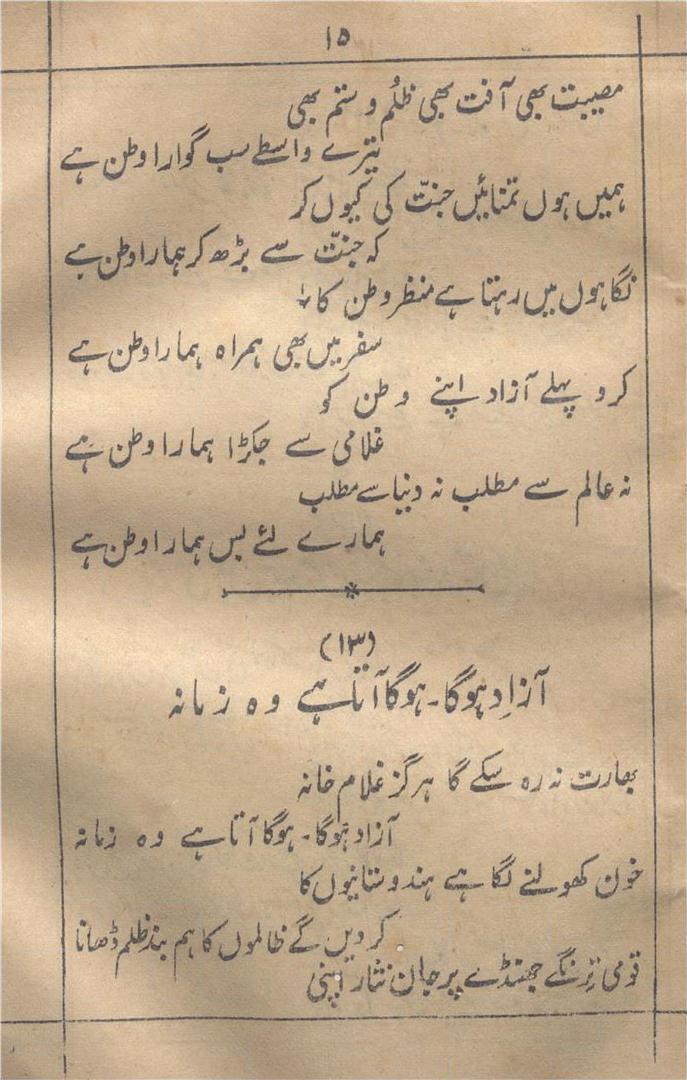 ۱۵
مصیبت بھی آفت بھی ظلُم و ستم بھی
تیرے واسطے سب گوارا وطن ہے
ہمیں ہوں تمنائیں جنتّ کی کیوں کر
کہ جنتّ سے بڑھ کر ہمارا وطن ہے
نگاہوں میں رہتا ہے منظر وطن کا
سفر میں بھی ہمراہ ہمارا وطن ہے
کرو پہلے آزاد اپنے وطن کو
غلامی سے جکڑا ہمارا وطن ہے
نہ عالم سے مطلب نہ دنیا سے مطلب
ہمارے لئے بس ہمارا وطن ہے
(۱۳)
آزاد ہوگا۔ ہوگا آتا ہے وہ زمانہ
بھارت نہ رہ سکے گا ہرگز غلام خانہ
آزاد ہوگا۔ ہوگا آتا ہے وہ زمانہ
خون کھولنے لگا ہے ہندوستانیوں کا
کر دیں گے ظالموں کا ہم بند ظلم ڈھانا
قومی ترنگے جھنڈے پر جان نثار اپنی